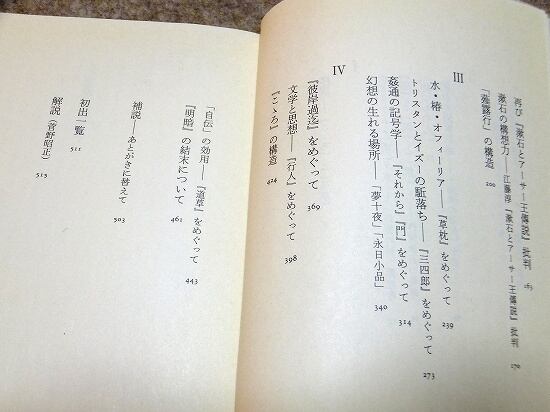 再び『漱石とアーサー王傳説』批判 163
漱石の構想力——江藤淳『漱石とアーサー王傳説』批判 170
「薤露行」の構造 200
III
水・椿・オフィーリア——『草枕』をめぐって 239
トリスタンとイズーの駈落ち——『三四郎』をめぐって 273
姦通の記号学——『それから』『門』をめぐって 314
幻想の生れる場所——「夢十夜」「永日小品」 340
IV
『彼岸過迄』をめぐって 369
文学と思想——『行人』をめぐって 398
『こゝろ』の構造 424
「自伝」の効用——『道草』をめぐって 443
『明暗』の結末について 462
補説——あとがきに替えて 503
初出一覧 511
解説（菅野昭正） 515